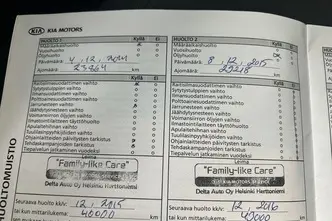 KIA KIA MOTORS
HUOLTO 1 Kyllä Ei
Määräaikaishuolto
Vuosihuolto
Öljyhuolto
Päivämäärä: 4, 12, 2014
Ajomäärä: 23264 km
Raitisilmasuodattimen vaihto
Sytytystulppien vaihto
Ilmansuodattimen vaihto
Polttoainesuodattimen vaihto
Jäähdytysnesteen vaihto
Jarrunesteen vaihto
Vaihteistoöljyn vaihto
Jakohihnan vaihto
Apulaitehihnan vaihto
Ohjainlaitteiden päivitysten tarkistus
Tehdaskampanjoiden tarkistus
Tiepalvelun jatkaminen vuodeksi
Leima
"Family-like Care"
Delta Auto Oy Helsinki Herttoniemi
Seuraava huolto kk/v: 12, 2015
tai kun mittarilukema: 40000
HUOLTO 2 Kyllä Ei
Määräaikaishuolto
Vuosihuolto
Öljyhuolto
Päivämäärä: 8, 12, 2015
Ajomäärä: 29218 km
Raitisilmasuodattimen vaihto
Sytytystulppien vaihto
Ilmansuodattimen vaihto
Polttoainesuodattimen vaihto
Jäähdytysnesteen vaihto
Jarrunesteen vaihto
Vaihteistoöljyn vaihto
Jakohihnan vaihto
Apulaitehihnan vaihto
Ohjainlaitteiden päivitysten tarkistus
Tehdaskampanjoiden tarkistus
Tiepalvelun jatkaminen vuodeksi
Leima
"Family-like Care"
Delta Auto Oy Helsinki Herttoniemi
Seuraava huolto kk/v: 12, 2016
tai kun mittarilukema: 40000
HUOLTOMUISTIO